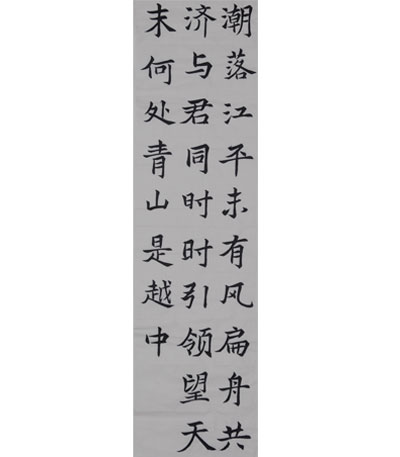 潮落江平未有风扁舟共
济与君同时时引领望天
末何处青山是越中